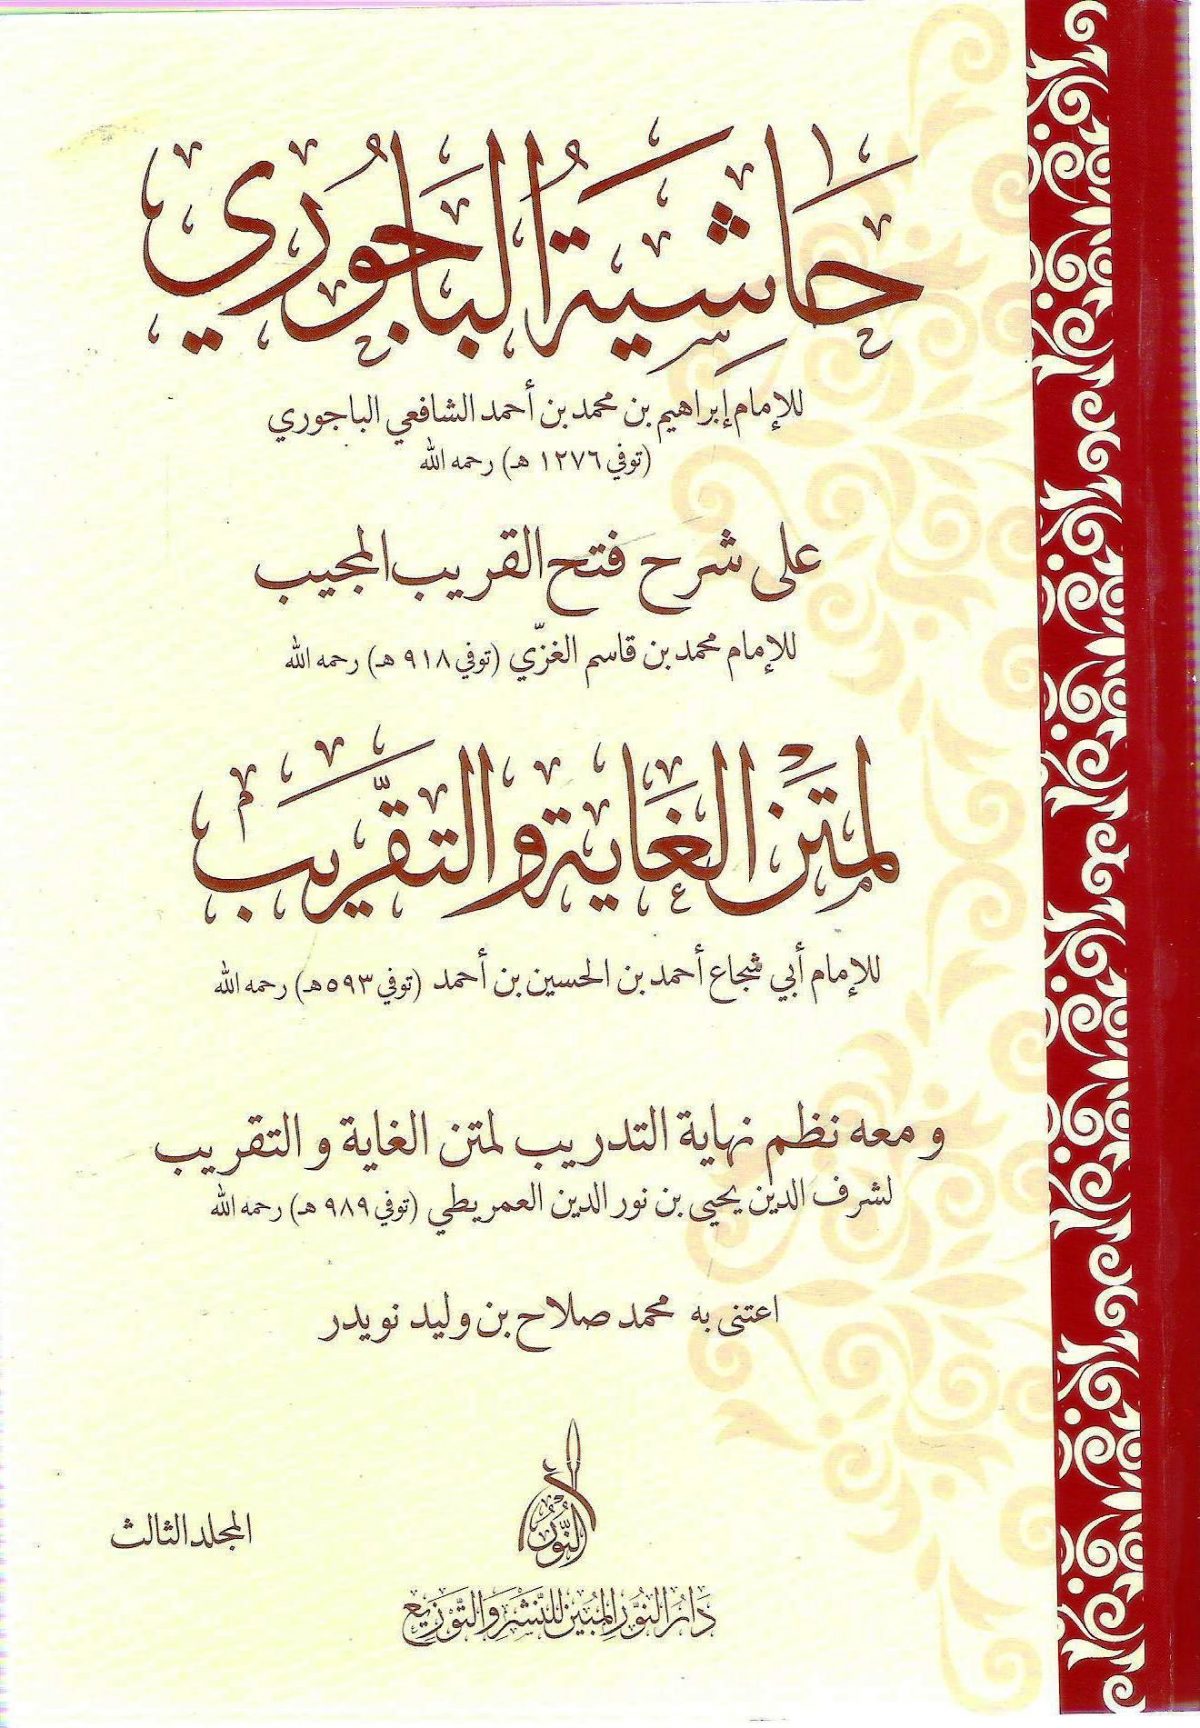 حَاشِيَةُ البَاجُورِي
للإمام إبراهيم بن محمد بن أحمد الشافعي الباجوري
(توفي ١٢٧٦ هـ) رحمه الله
على شرح فتح القريب المجيب
للإمام محمد بن قاسم الغزّي (توفي ٩١٨ هـ) رحمه الله
لمَتْن الغَاية والتقرّيَب
للإمام أبي شجاع أحمد بن الحسين بن أحمد (توفي ٥٩٣هـ) رحمه الله
و معه نظم نهاية التدريب لمتن الغاية و التقريب
لشرف الدين يحيى بن نور الدين العمريطي (توفي ٩٨٩ هـ) رحمه الله
اعتنى به محمد صلاح بن وليد نويدر
النُّورُ
دَارُ النُّورِ المُبِين لِلنَّشْرِ وَالتَّوْزِيعِ
المجلد الثالث